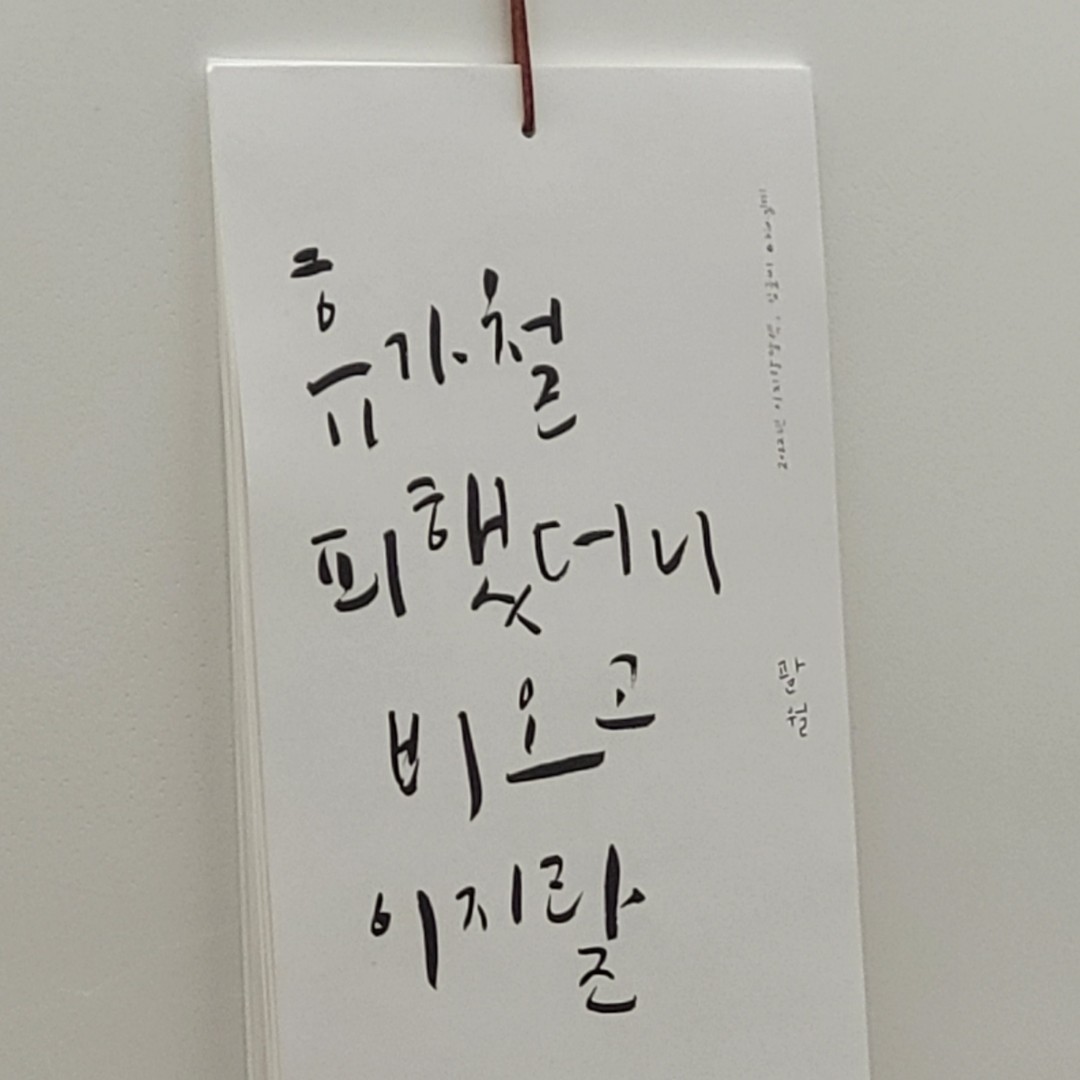 휴가철
피햇더니
비오고
이지랄
팔월